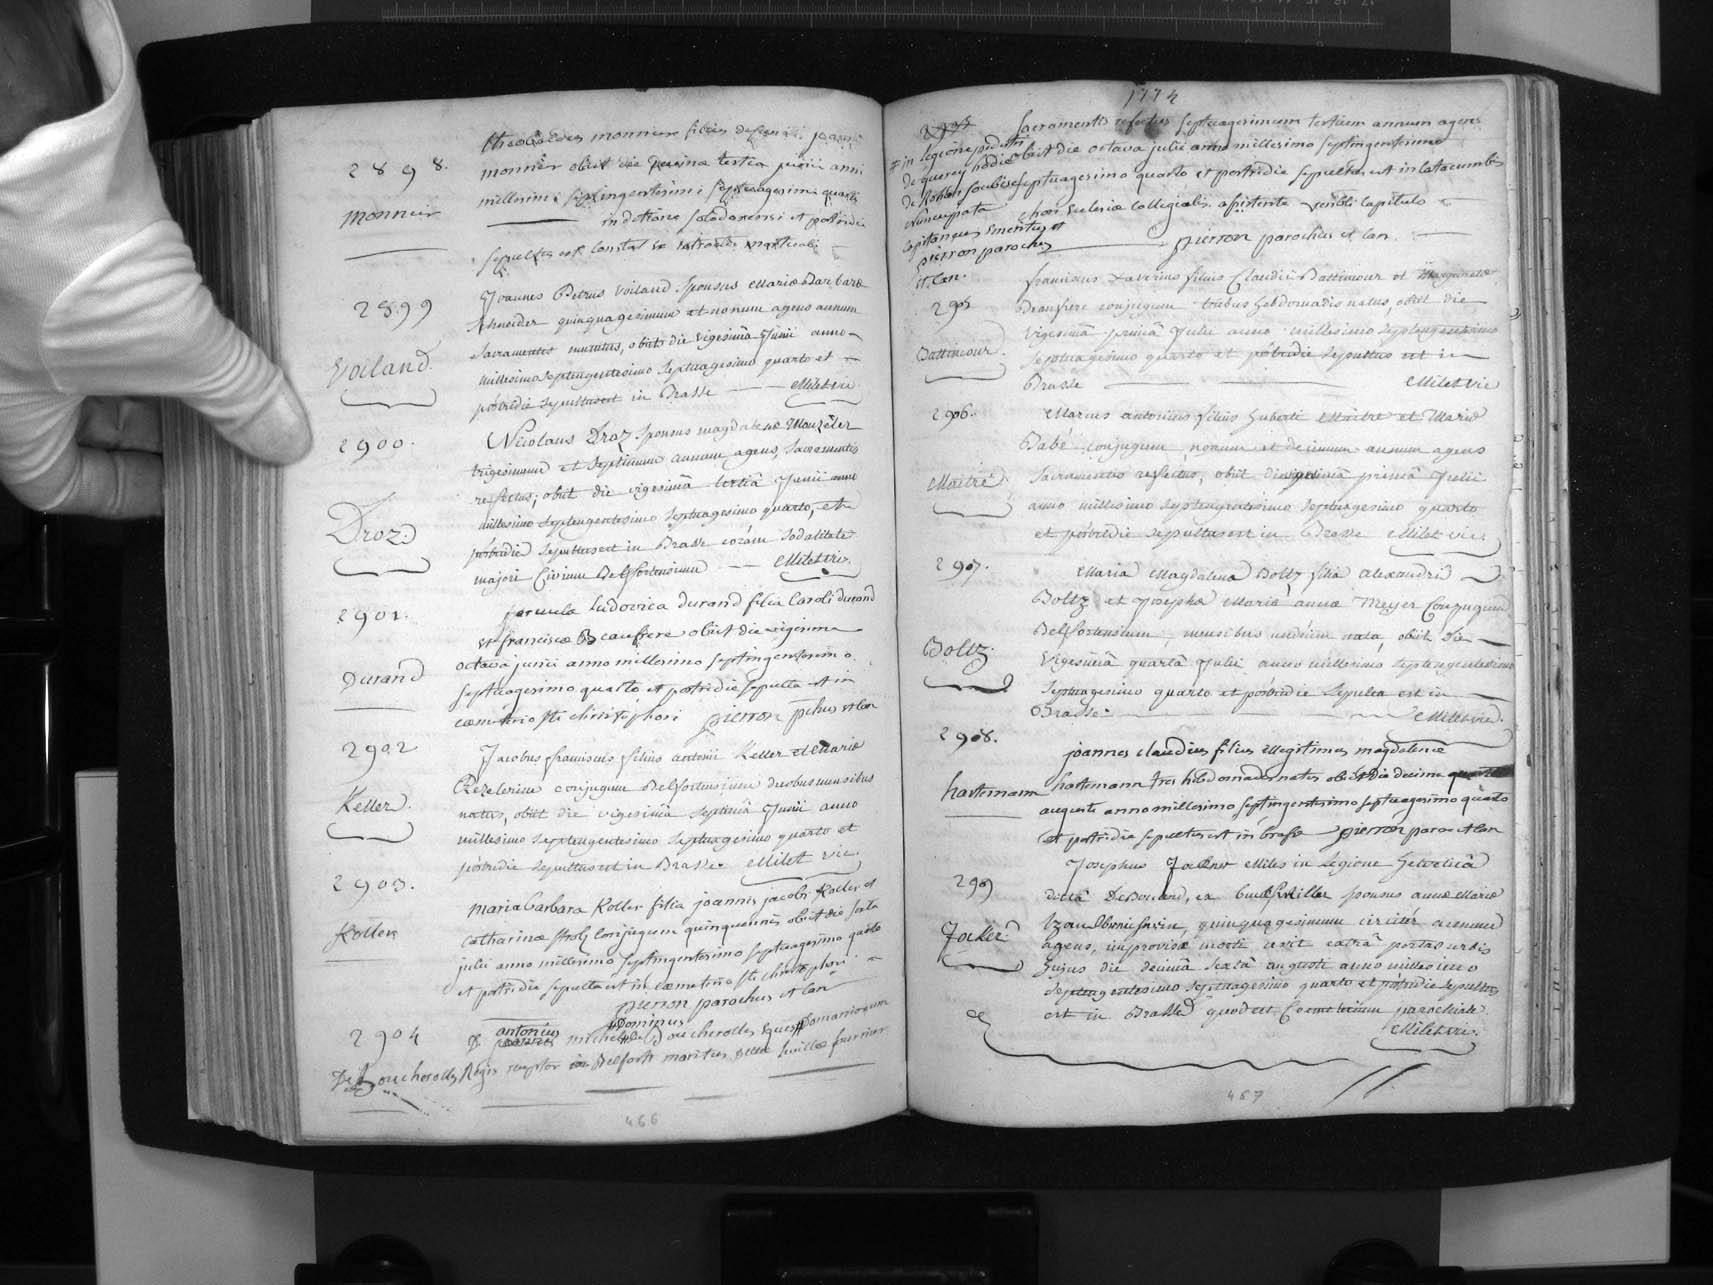 2898.
Monnier
theobaldus monnier filius defuncti joannis
monnier obiit die tertia junii anni
millesimi septingentesimi septuagesimi quarti
in et postridie
sepultus est constat ex
2899
Voiland.
Joannes Petrus Voiland sponsus Mariæ Barbaræ
Shneider quinquagesimum et nonum agens annum
sacramentis munitus, obiit die vigesimâ Junii anno
millesimo septengentesimo septuagesimo quarto et
postridie sepultus est in Brasse Milet vic
2900.
Droz
Nicolaus Droz sponsus magdalenæ Monzeler
trigesimum et septimum annum agens, sacramentis
refectus, obiit die vigesimâ tertiâ Junii anno
millesimo septengentesimo septuagesimo quarto, et
postridie sepultus est in Brasse coràm sodalitate
majori Civium Belfortensium Milet vic.
2901.
Durand
Ludovica durand filia Caroli durand
et franciscæ Beaufrere obiit die vigesima
octava junii anno millesimo septingentesimo
septuagesimo quarto et postridie sepulta est in
cœmeterio sti christophori pierron pchus et can
2902
Keller.
Jacobus franciscus filius antonii Keller et Mariæ
conjugum Belfortensium duobus mensibus
natus, obiit die vigesimâ septimâ Junii anno
millesimo septengentesimo septuagesimo quarto et
postridie sepultus est in Brasse. Milet vic.
2903.
Koller
maria barbara Koller filia joannis jacobi Koller et
catharinæ stroly conjugum quinquennis obiit die sexta
julii anno millesimo septingentesimo septuagesimo quarto
et postridie sepulta est in cœmeterio sti christophori
pierron parochus et can
2904
De Boucherolles
D. antonius michel Dominus de Boucherolles eques Domaniorum
Regis receptor in Belfort maritus
466
1774
sacramentis refectus septuagesimum tertium annum agens
obiit die octava julii anno millesimo septingentesimo
septuagesimo quarto et postridie sepultus est in catacumbis
chori Ecclesiæ collegialis assistente venbli capitulo
pierron parochus et can.
# in legione pedestri
de quercy hodie
de Rohan soubise
nuncupata
capitaneus emeritus et
pierron parochus
et can.
2905
Battincour.
franciscus Xaverius filius Claudii Battincour et Margaretæ
Beaufrere conjugum tribus hebdomadis natus, obiit die
vigesimâ primâ Julii anno millesimo septengentesimo
septuagesimo quarto et postridie sepultus est in
Brasse Milet vic
2906.
Maitre.
Marcus antonius filius huberti Maitre et Mariæ
Babé conjugum, nonum et decimum annum agens
sacramentis refectus, obiit die vigesimâ primâ Julii
anno millesimo septengentesimo septuagesimo quarto
et postridie sepultus est in Brasse Milet vic.
2907.
Boltz.
Maria Magdalena Boltz filia alexandri
Boltz et Josephæ Mariæ annæ Meyer Conjugum
Belfortensium, mensibus undecim nata, obiit die
vigesimâ quartâ Julii anno millesimo septengentesimo
septuagesimo quarto et postridie sepulta est in
Brasse. Milet vic.
2908.
hartemann
joannes claudius filius illegitimus magdalenæ
hartemann tres hebdomades natus obiit die decima quarta
augusti anno millesimo septingentesimo septuagesimo quarto
et postridie sepultus est in brasse pierron paroc et can
2909
Jocker
Josephus Jocker Miles in legione helveticâ
dictâ De Boccard, ex sponsus annæ Mariæ
quinquagesimum circiter annum
agens, improvisâ morte cessit extrà portas urbis
hujus die decimâ sextâ augusti anno millesimo
septengentesimo septuagesimo quarto et postridie sepultus
est in Brasse quod est Cœmeterium parochiale.
Milet vic.
467